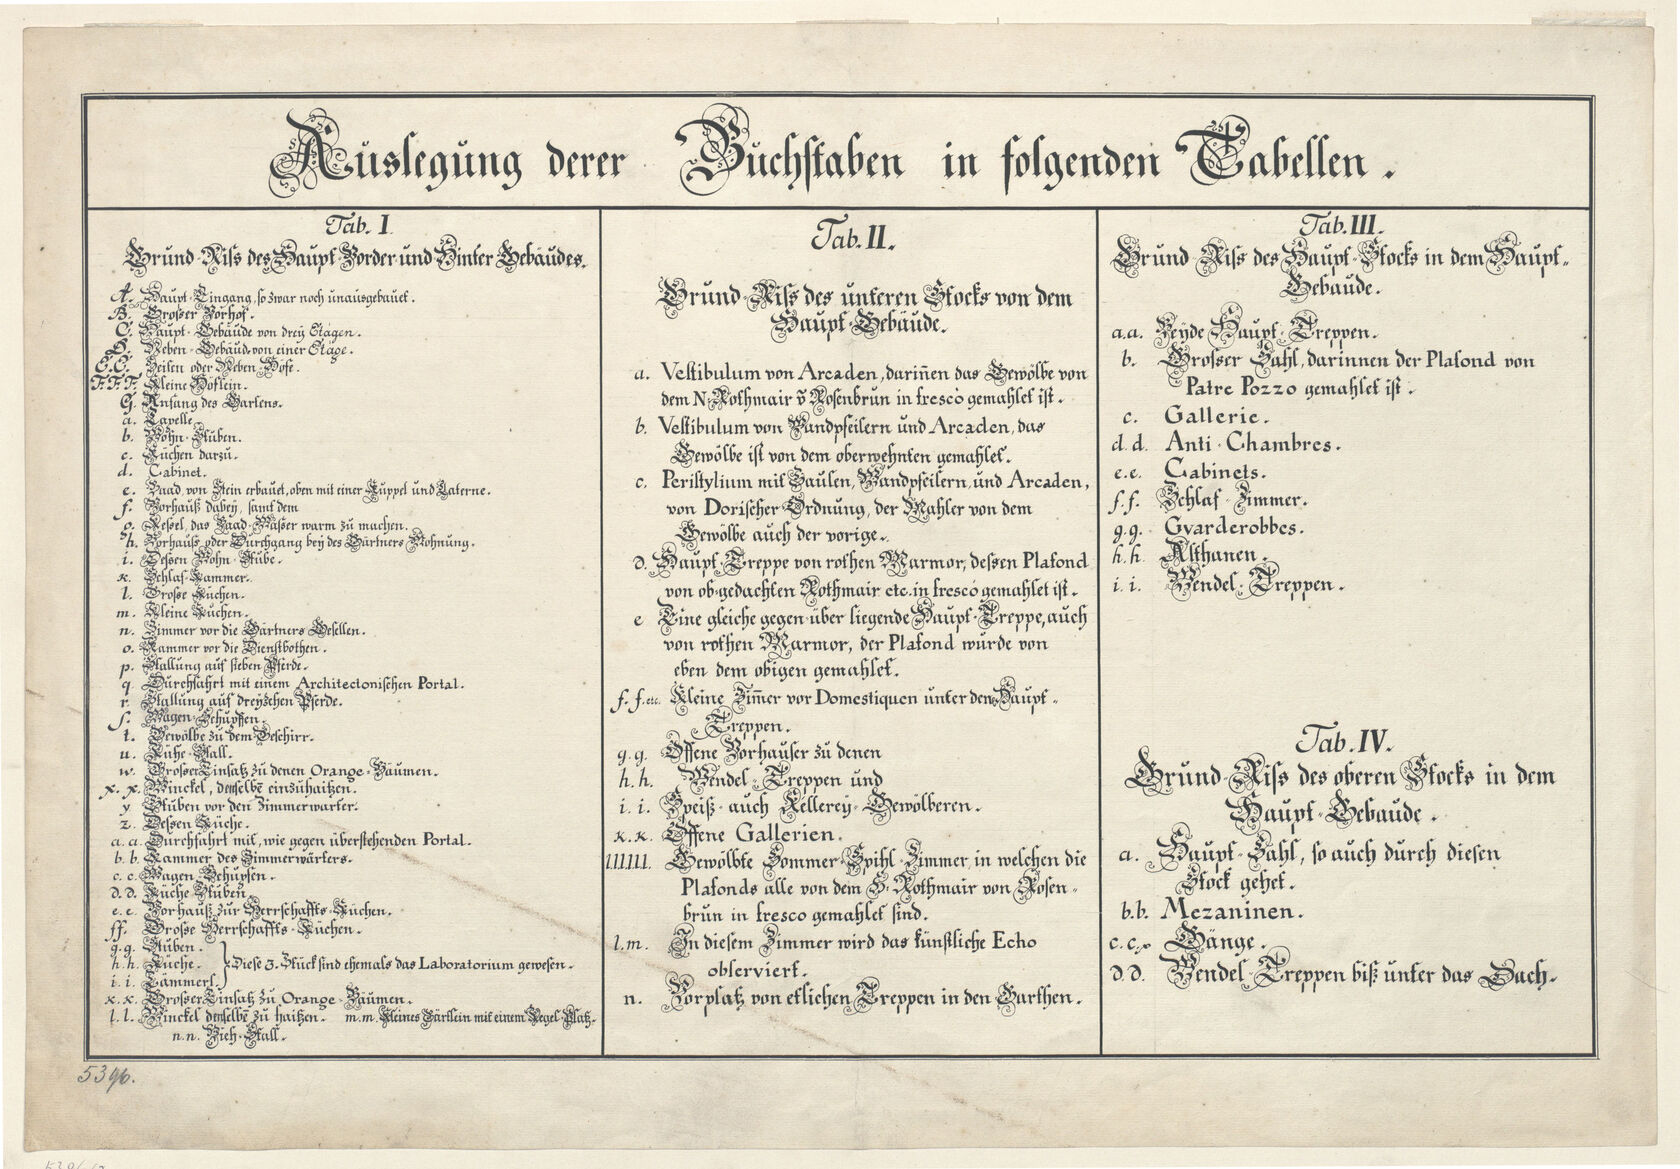 Auslegung derer Buchstaben in folgenden Tabellen.
Tab. I
Grund-Riss des Haupt-Vorder-und Hinter Gebäudes.
A. Haupt-Eingang, so zwar noch unausgebauet.
B. Grosser Vorhof.
C. Haupt-Gebäude von dreÿ Etagen.
D. Neben-Gebäud von einer Etage.
E.E. Seiten oder Neben-Höfe.
F.F.F. Kleine Höflein.
G. Anfang des Gartens.
a. Capelle.
b. Wohn-Stuben.
c. Kuchen darzu.
d. Cabinet.
e. Baad, von Stein erbauet, oben mit einer Kuppel und Laterne.
f. Vorhauß dabey, samt dem
g. Kessel, das Baad-Wasser warm zu machen.
h. Vorhauß oder Durchgang beÿ des Gärtners Wohnung.
i. Dessen Wohn-Stube.
k. Schlaf-Kammer.
l. Große Kuchen.
m. Kleine Kuchen.
n. Zimmer vor die Gärtners Gesellen.
o. Kammer vor die Dienstbothen.
p. Stallung auf sieben Pferde.
q. Durchfahrt mit einem Architectonischen Portal.
r. Stallung auf dreÿzehen Pferde.
s. Wagen-Schupffen.
t. Gewölbe zu dem Geschirr.
u. Kühe-Stall.
w. Großer Einsatz zu denen Orange-Bäumen.
x. x. Winckel, demselbē einzuhaitzen.
y. Stuben vor den Zimmerwarter.
z. Dessen Küche.
a. a. Durchfahrt mit, wie gegen überstehenden Portal.
b. b. Kammer des Zimmerwärters.
c. c. Wagen-Schupfen.
d. d. Küche Stuben.
e. e. Vorhauß zur Herrschaffts-Küchen.
ff. Große Herrschaffts-Küchen.
g. g. Stuben.
h. h. Küche. } Diese 3. Stück sind ehemals das Laboratorium gewesen.
i. i. Cämmerl.
k. k. Großer Einsatz zu Orange-Bäumen.
l. l. Winckel demselbē zu haitzen. m. m. Kleines Gärtlein mit einem Kegel-Platz.
n. n. Vieh-Stall.
Tab. II.
Grund-Riss des unteren Stocks von dem
Haupt-Gebäude.
a. Vestibulum von Arcaden, dariñen das Gewölbe von
dem N. Rothmair v̄ Rosenbrun in fresco gemahlet ist.
b. Vestibulum von Wandpfeilern und Arcaden, das
Gewölbe ist von dem oberwehnten gemahlet.
c. Peristylium mit Saulen, Wandpfeilern, und Arcaden,
von Dorischer Ordnung, der Mahler von dem
Gewölbe auch der vorige.
d. Haupt-Treppe von rothen Marmor, deßen Plafond
von ob-gedachten Rothmair etc. in fresco gemahlet ist.
e Eine gleiche gegen-über liegende Haupt-Treppe, auch
von rothen Marmor, der Plafond wurde von
eben dem obigen gemahlet.
f. f. etc. Kleine Zim̄er vor Domestiquen unter den Haupt-
Treppen.
g. g. Offene Vorhauser zu denen
h. h. Wendel-Treppen und
i. i. Speiß-auch Kellereÿ-Gewölberen.
k. k. Offene Gallerien.
llllll. Gewölbte Sommer-Spihl-Zimmer, in welchen die
Plafonds alle von dem H. Rothmair von Rosen-
brun in fresco gemahlet sind.
l. m. In diesem Zimmer wird das künstliche Echo
observiert.
n. Vorplatz von etlichen Treppen in den Garthen.
Tab. III.
Grund-Riss des Haupt-Stocks in dem Haupt-
Gebäude.
a. a. Beÿde Haupt-Treppen.
b. Großer Sahl, darinnen der Plafond von
Patre Pozzo gemahlet ist.
c. Gallerie.
d. d. Anti-Chambres.
e. e. Cabinets.
f. f. Schlaf-Zimmer.
g. g. Gvarderobbes.
h. h. Althanen.
i. i. Wendel-Treppen.
Tab. IV.
Grund-Riss des oberen Stocks in dem
Haupt-Gebäude.
a. Haupt-Sahl, so auch durch diesen
Stock gehet.
b. b. Mezaninen.
c. c. Gänge.
d. d. Wendel-Treppen biß unter das Dach.
539b.